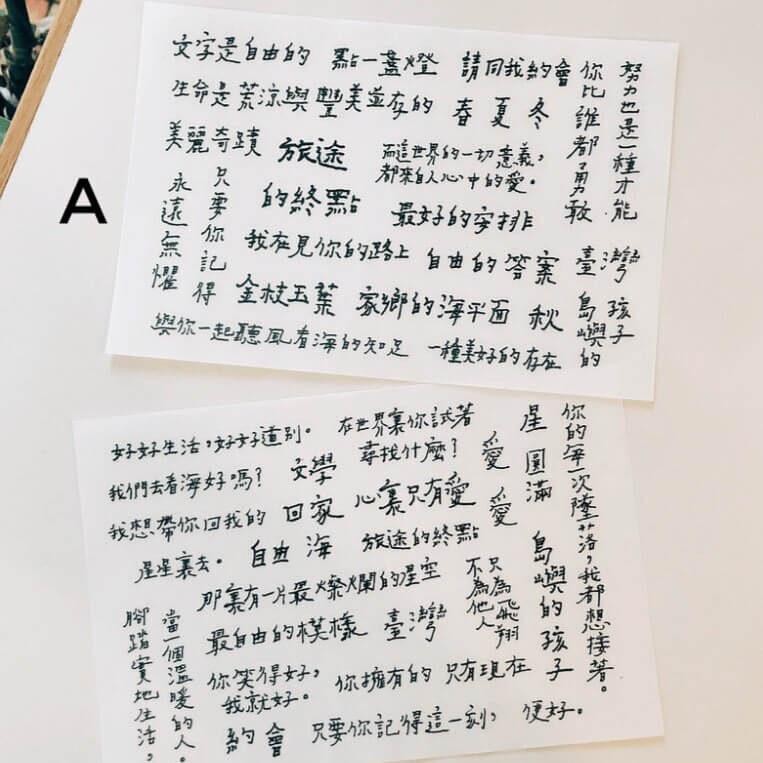 文字是自由的
點一盞燈
請同我約會
你比誰都勇敢
努力也是一種才能
生命是荒涼與豐美並存的
春 夏 冬
美麗奇蹟
旅途
的終點
而這世界的一切意義,
都來自人心中的愛。
A
永遠無懼
只要你記得
最好的安排
我在見你的路上
自由的答案
臺灣
島嶼的
孩子
金枝玉葉
家鄉的海平面
秋
與你一起聽風看海的知足
一種美好的存在
好好生活,好好道別。
在世界裏你試著
尋找什麼?
星
圓滿
你的每一次墜落,我都想接著。
我們去看海好嗎?
文學
愛
我想帶你回我的
星星裏去。
回家
心裏只有愛
愛
自由
海
旅途的終點
島嶼的孩子
那裏有一片最燦爛的星空
只為飛翔
不為他人
腳踏實地生活,
當一個溫暖的人。
最自由的模樣
臺灣
你笑得好,
我就好。
你擁有的
只有現在
約會
只要你記得這一刻,
便好。